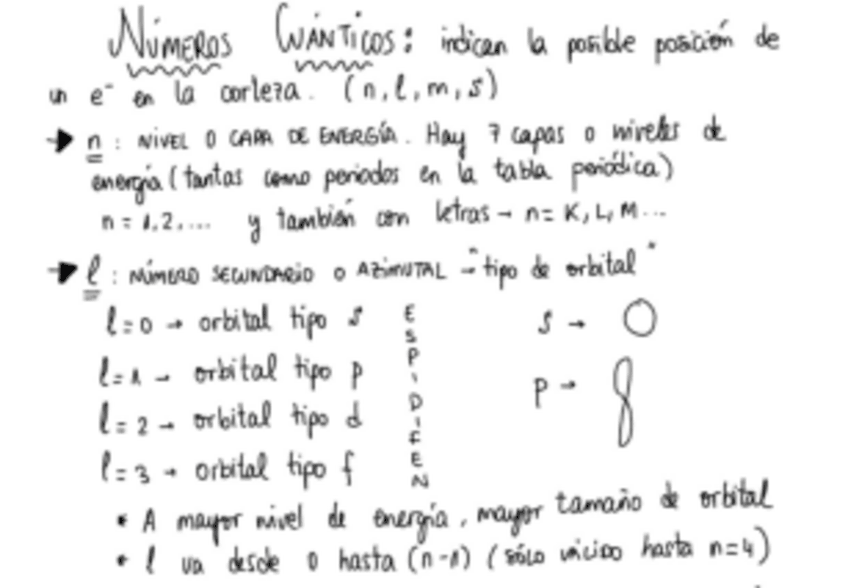 NÚMEROS CUÁNTICOS: indican la posible posición de
un e⁻ en la corteza. (n, l, m, s)
→ n: NIVEL O CAPA DE ENERGÍA. Hay 7 capas o niveles de
energía (tantas como periodos en la tabla periódica)
n = 1, 2, ... y también con letras → n = K, L, M...
→ l: NÚMERO SECUNDARIO O AZIMUTAL → "tipo de orbital"
l = 0 → orbital tipo s E S s →
l = 1 → orbital tipo p P I p →
l = 2 → orbital tipo d D I
l = 3 → orbital tipo f F E N
• A mayor nivel de energía, mayor tamaño de orbital
• l va desde 0 hasta (n-1) (sólo válido hasta n=4)